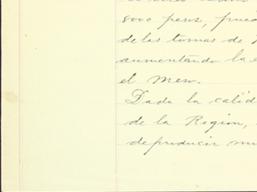 8000 pens, prue
de las tomas de
aumentando la
el mes.
Dada la calid
de la Region,
de producir mu